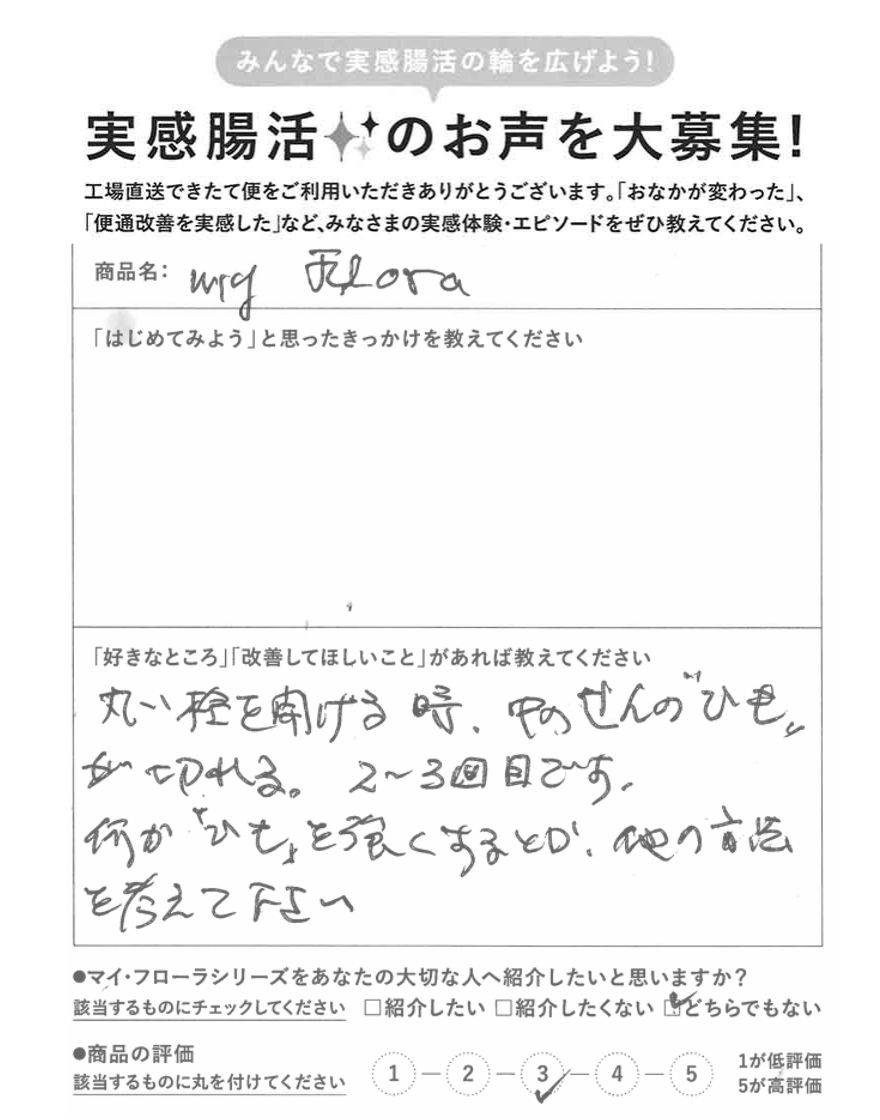 みんなで実感腸活の輪を広げよう!
実感腸活のお声を大募集!
工場直送できたて便をご利用いただきありがとうございます。「おなかが変わった」、
「便通改善を実感した」など、みなさまの実感体験・エピソードをぜひ教えてください。
商品名: my Flora
「はじめてみよう」と思ったきっかけを教えてください
「好きなところ」「改善してほしいこと」があれば教えてください
丸い栓を開ける時、中のせんの"ひも„
が切れる。2〜3回目です。
何か「ひも」を強くするとか、他の方法
を考えて下さい
●マイ・フローラシリーズをあなたの大切な人へ紹介したいと思いますか?
該当するものにチェックしてください □紹介したい □紹介したくない ☑どちらでもない
●商品の評価
該当するものに丸を付けてください
1 2 3 4 5
1が低評価
5が高評価